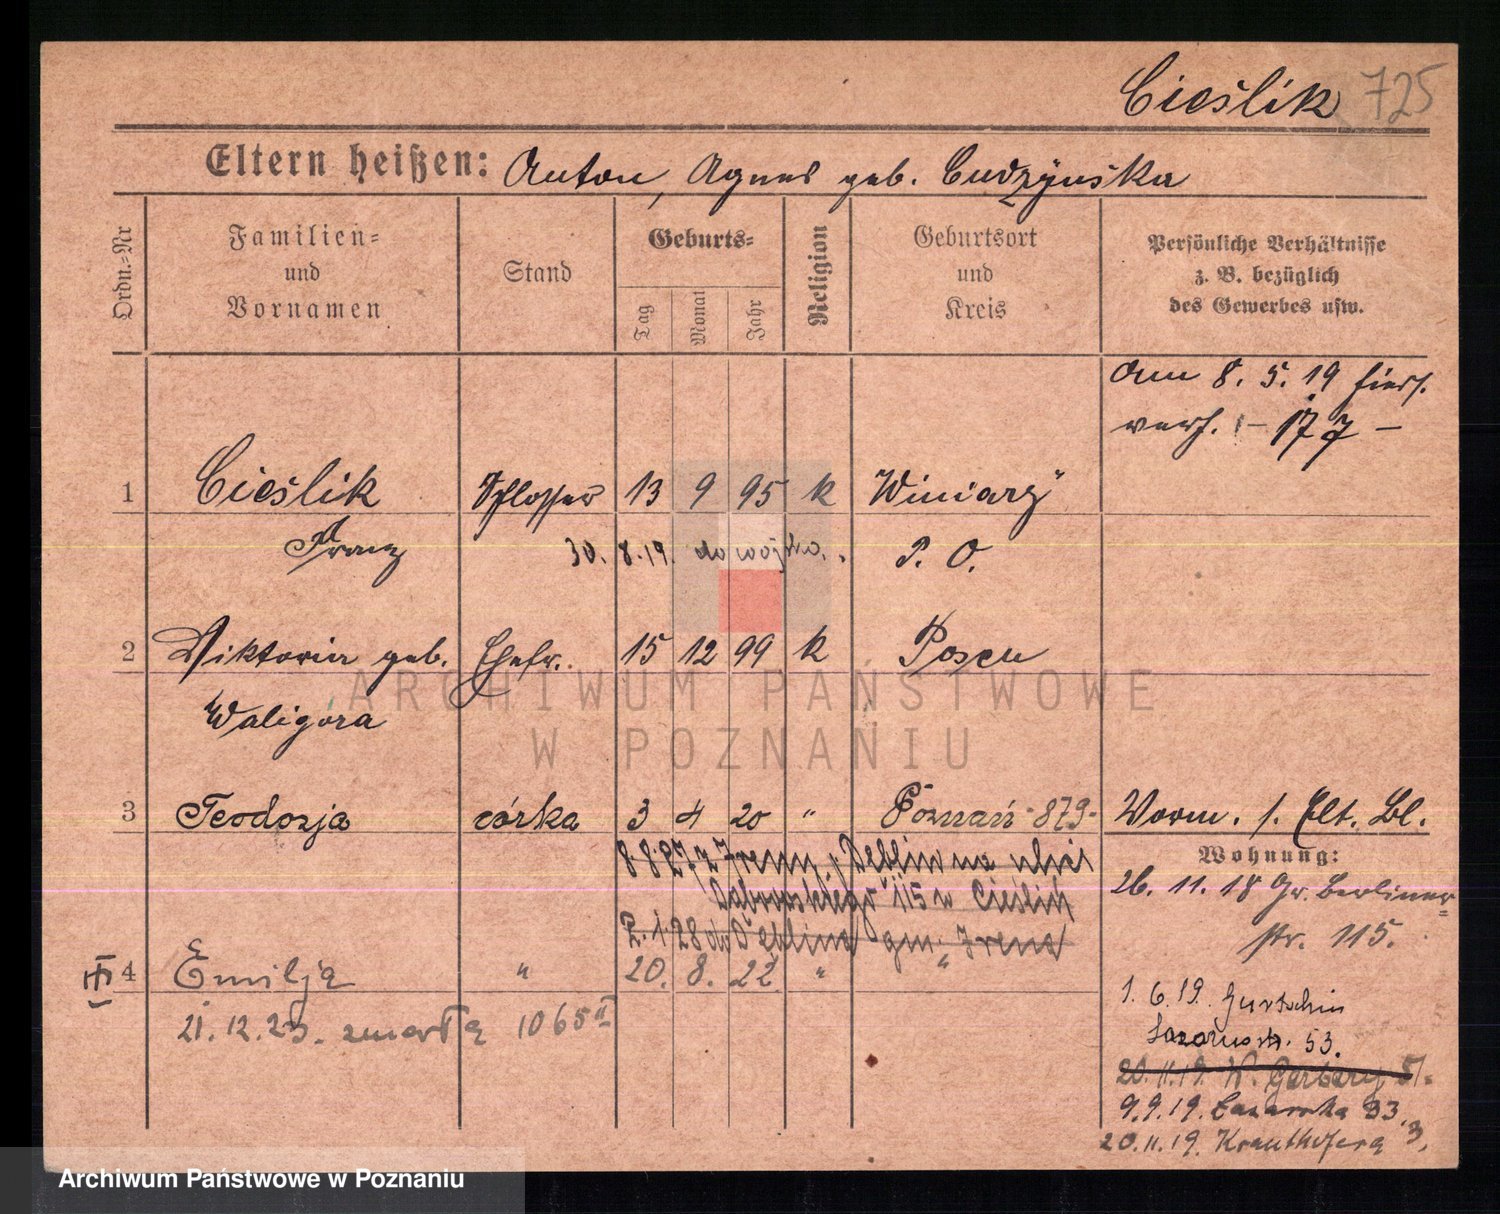 Cieślik 725
Eltern heißen: Anton, Agnes geb. Cudzyńska
Ordn.-Nr
Familien-
und
Vornamen
Stand
Geburts-
Tag
Monat
Jahr
Religion
Geburtsort
und
Kreis
Persönliche Verhältnisse
z. B. bezüglich
des Gewerbes usw.
am 8. 5. 19 hier
verh. - 177 -
1 Cieślik Schlosser 13 9 95 k Winiary
Franz 30. 8. 19. do wojska. P. O.
2 Viktoria geb. Ehefr. 15 12 99 k Posen
Waligóra
3 Teodozja córka 3 4 20 " Poznań - 879 - Vorm. s. Elt. Bl.
8.8.27 z Ireny, Deblin na ulicę
Dąbrowskiego 115 w Cieślik
2.1.28 do Deblina gm. Irena
Wohnung:
26. 11. 18 Gr. Berliner-
str. 115.
III 4 Emilja " 20. 8. 22 "
21. 12. 23. zmarła 1065 II
1. 6. 19. Gurtschin
Lazarusstr. 53.
20. 11. 19. W. Garbary 51.
9. 9. 19. Lazarska 33.
20. 11. 19. Krauthofera 3.
ARCHIWUM PAŃSTWOWE
W POZNANIU
Archiwum Państwowe w Poznaniu